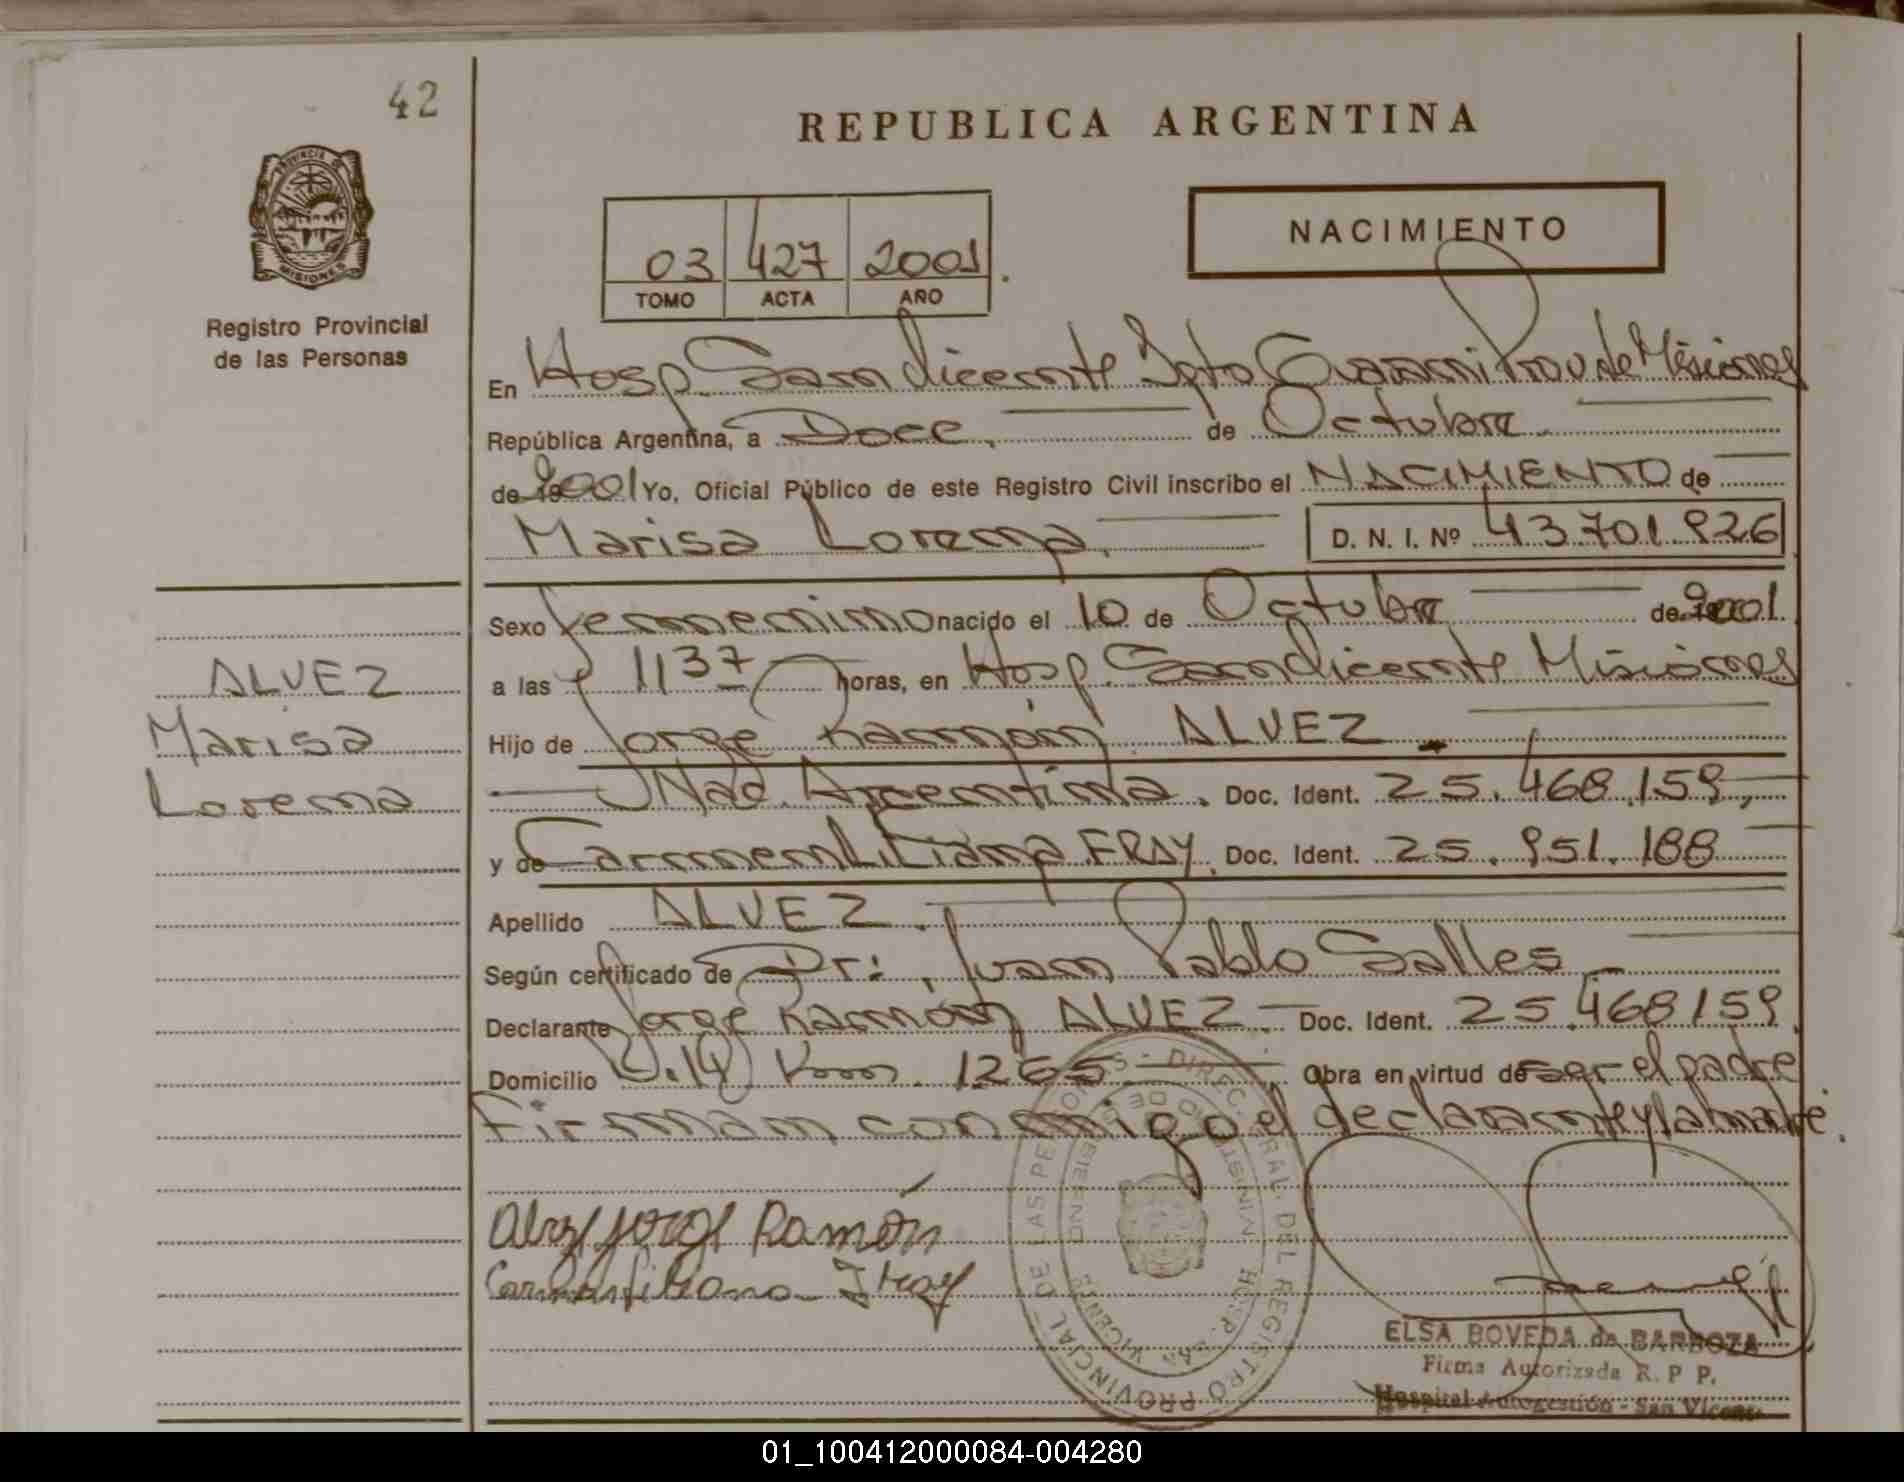 42
REPUBLICA ARGENTINA
PROVINCIA DE
MISIONES
Registro Provincial
de las Personas
03 427 2001.
TOMO ACTA AÑO
NACIMIENTO
En Hosp. San Vicente Dpto Guaraní Prov de Misiones
República Argentina, a Doce. de Octubre.
de 2001 Yo, Oficial Público de este Registro Civil inscribo el NACIMIENTO de
Marisa Lorena. D. N. I. Nº 43.701.926
Sexo femenino nacido el 10 de Octubre de 2001.
a las 11 37 horas, en Hosp. San Vicente Misiones
Hijo de Jorge Ramón ALVEZ.
Nac. Argentina. Doc. Ident. 25.468.159,
y de Carmen Liliana FRAY. Doc. Ident. 25.951.188
Apellido ALVEZ.
Según certificado de Dr: Juan Pablo Salles
Declarante Jorge Ramón ALVEZ.- Doc. Ident. 25.468159.
Domicilio Km. 1265 Obra en virtud de ser el padre
Firman conmigo el declarante y la madre.
ALVEZ
Marisa
Lorena
Alvez Jorge Ramón
Carmen Liliana Fray
REGISTRO PROVINCIAL DE LAS PERSONAS - DIREC. GRAL. DEL
MINISTERIO DE GOBIERNO HOSP. SAN VICENTE
ELSA BOVEDA de BARBOZA
Firma Autorizada R. P P.
Hospital Autogestión - San Vicente
01_100412000084-004280